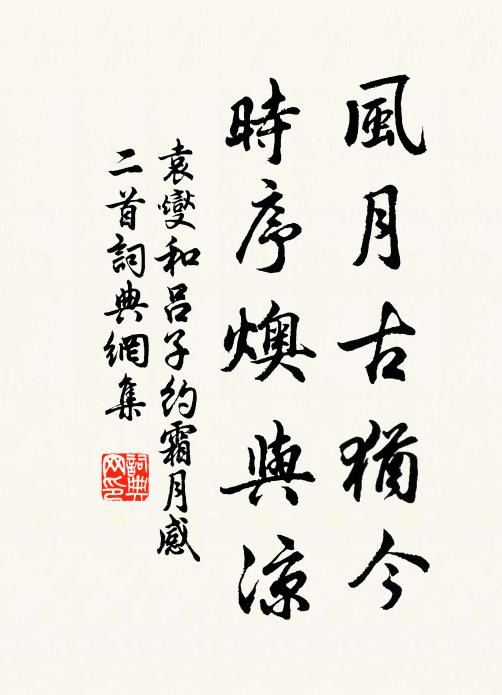 風月古猶今
時序燠與涼
袁燮和呂子約霜月感
二首詞典網集
詞典
网印